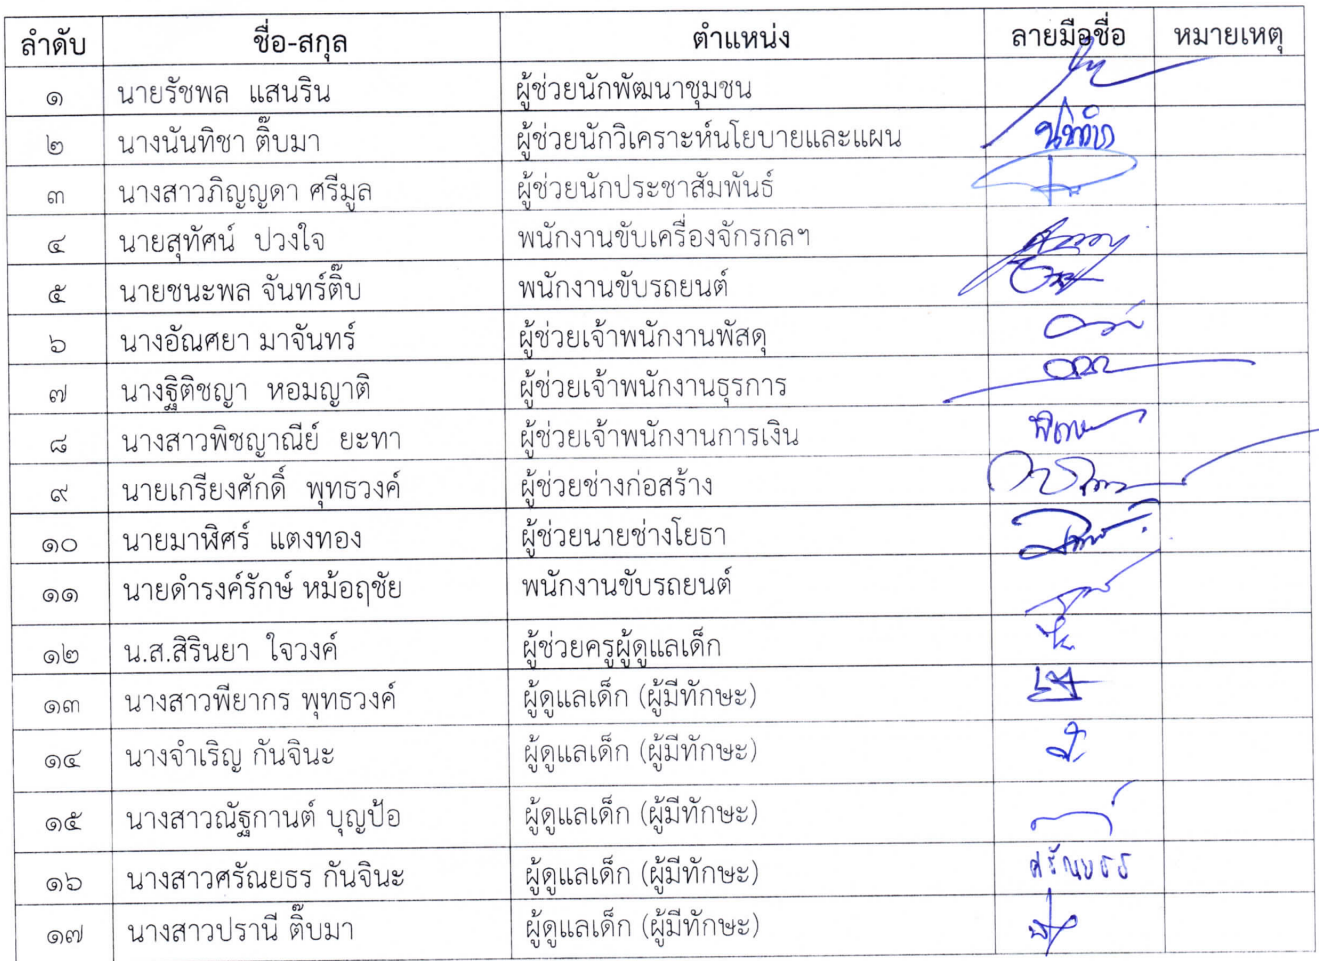 ลำดับ ชื่อ-สกุล ตำแหน่ง ลายมือชื่อ หมายเหตุ
๑ นายรัชพล แสนริน ผู้ช่วยนักพัฒนาชุมชน
๒ นางนันทิชา ติ๊บมา ผู้ช่วยนักวิเคราะห์นโยบายและแผน
๓ นางสาวภิญญดา ศรีมูล ผู้ช่วยนักประชาสัมพันธ์
๔ นายสุทัศน์ ปวงใจ พนักงานขับเครื่องจักรกลฯ
๕ นายชนะพล จันทร์ติ๊บ พนักงานขับรถยนต์
๖ นางอัณศยา มาจันทร์ ผู้ช่วยเจ้าพนักงานพัสดุ
๗ นางฐิติชญา หอมญาติ ผู้ช่วยเจ้าพนักงานธุรการ
๘ นางสาวพิชญาณีย์ ยะทา ผู้ช่วยเจ้าพนักงานการเงิน
๙ นายเกรียงศักดิ์ พุทธวงค์ ผู้ช่วยช่างก่อสร้าง
๑๐ นายมาฬิศร์ แตงทอง ผู้ช่วยนายช่างโยธา
๑๑ นายดำรงค์รักษ์ หม้อฤชัย พนักงานขับรถยนต์
๑๒ น.ส.สิรินยา ใจวงค์ ผู้ช่วยครูผู้ดูแลเด็ก
๑๓ นางสาวพียากร พุทธวงค์ ผู้ดูแลเด็ก (ผู้มีทักษะ)
๑๔ นางจำเริญ กันจินะ ผู้ดูแลเด็ก (ผู้มีทักษะ)
๑๕ นางสาวณัฐกานต์ บุญป้อ ผู้ดูแลเด็ก (ผู้มีทักษะ)
๑๖ นางสาวศรัณยธร กันจินะ ผู้ดูแลเด็ก (ผู้มีทักษะ) ศรัณยธร
๑๗ นางสาวปรานี ติ๊บมา ผู้ดูแลเด็ก (ผู้มีทักษะ)